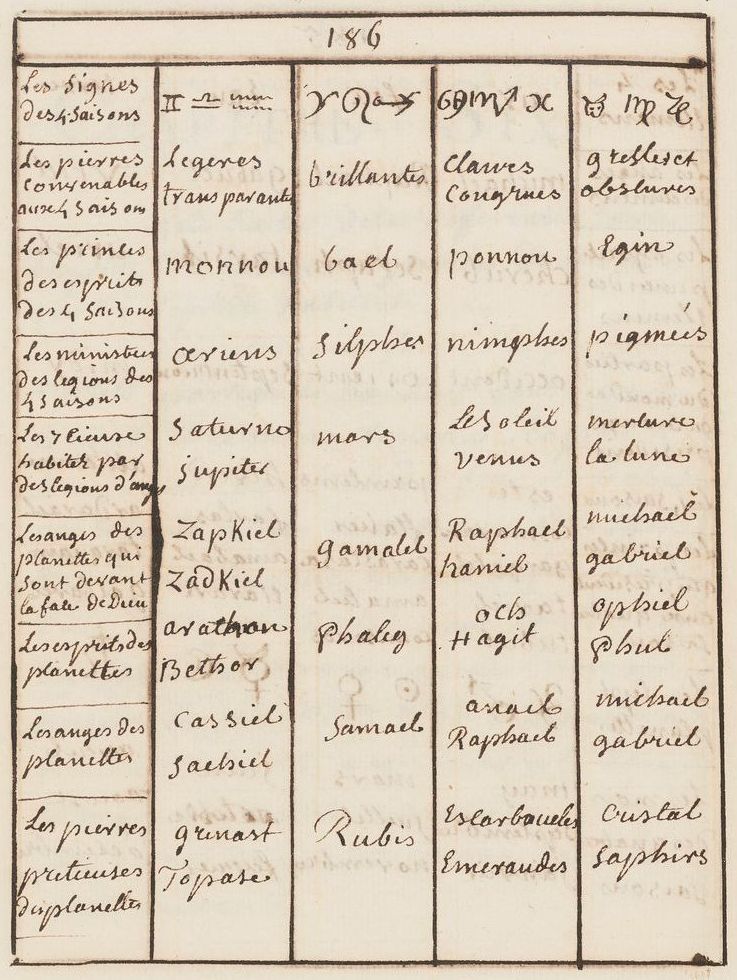 186
Les Signes
des 4 Saisons
♊ ♎ ♒
♈ ♌ ♐
♋ ♏ ♓
♉ ♍ ♑
Les pierres
Convenables
aux 4 Saisons
Legeres
transparante
brillantes
Claires
Congrues
gresles et
obscures
Les princes
des esprits
des 4 Saisons
monnou
bael
ponnou
Egin
Les ministres
des legions des
4 Saisons
œriens
Silphes
nimphes
pigmeés
Les 7 Cieuse
habitez par
des legions d'anges
Saturne
jupiter
mars
Le Soleil
venus
mercure
la lune
Les anges des
planettes qui
Sont devant
la face de Dieu
Zapkiel
Zadkiel
gamalel
Raphael
haniel
michael
gabriel
Les esprits des
planettes
arathon
Bethor
Phaleg
och
Hagit
ophiel
Phul
Les anges des
planettes
Cassiel
Sachiel
Samael
anael
Raphael
michael
gabriel
Les pierres
pretieuses
des planettes
grenast
Topase
Rubis
Escarboucles
Emeraudes
Cristal
Saphirs